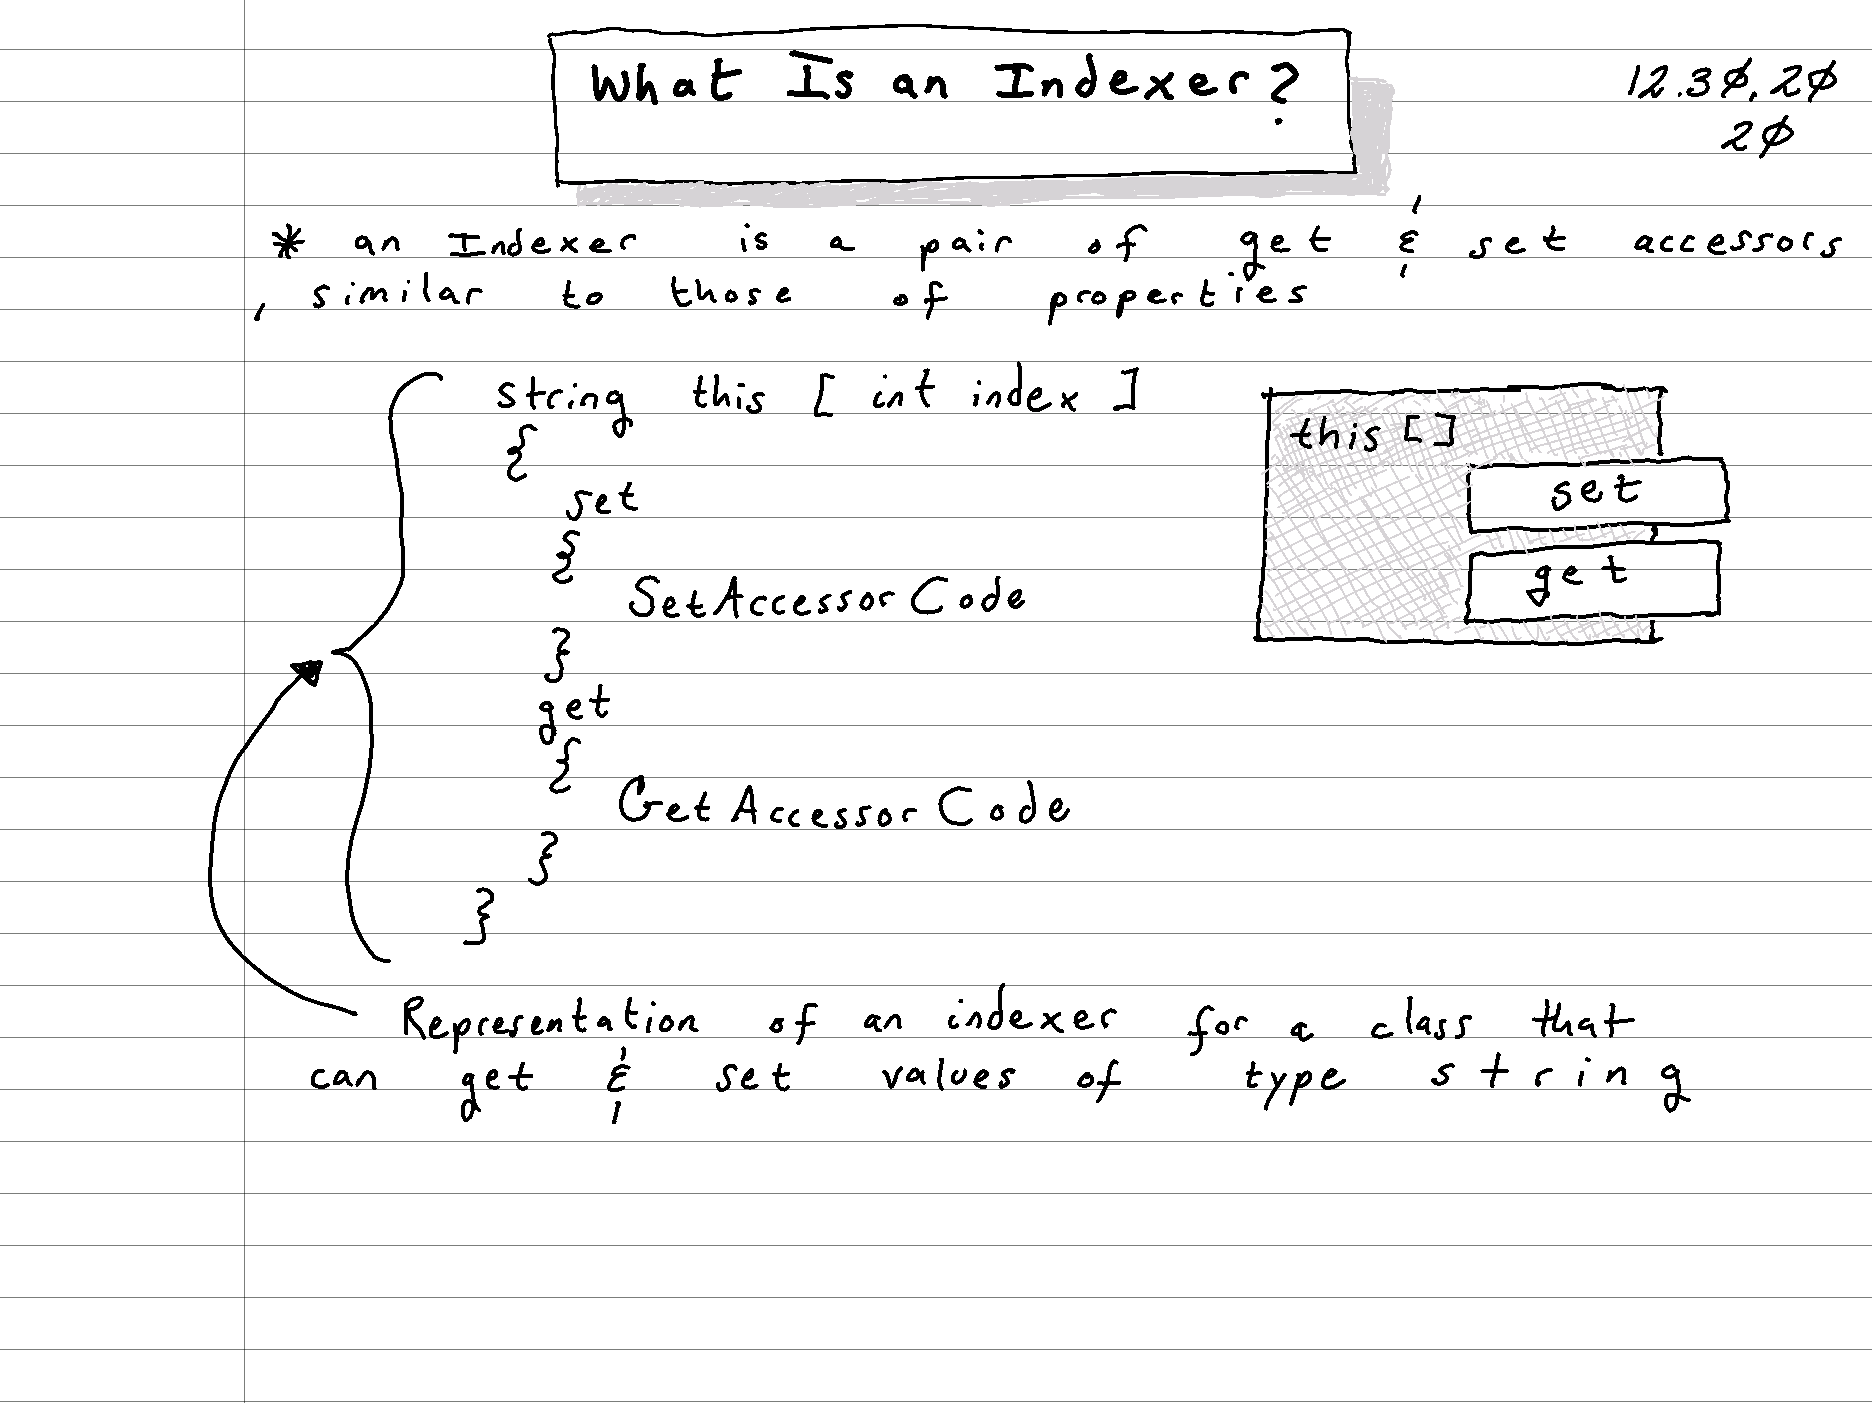 What Is an Indexer?
12.30,20
20
* an Indexer is a pair of get & set accessors
, similar to those of properties
string this [ int index ]
{
set
{
SetAccessorCode
}
get
{
GetAccessorCode
}
}
this []
set
get
Representation of an indexer for a class that
can get & set values of type string